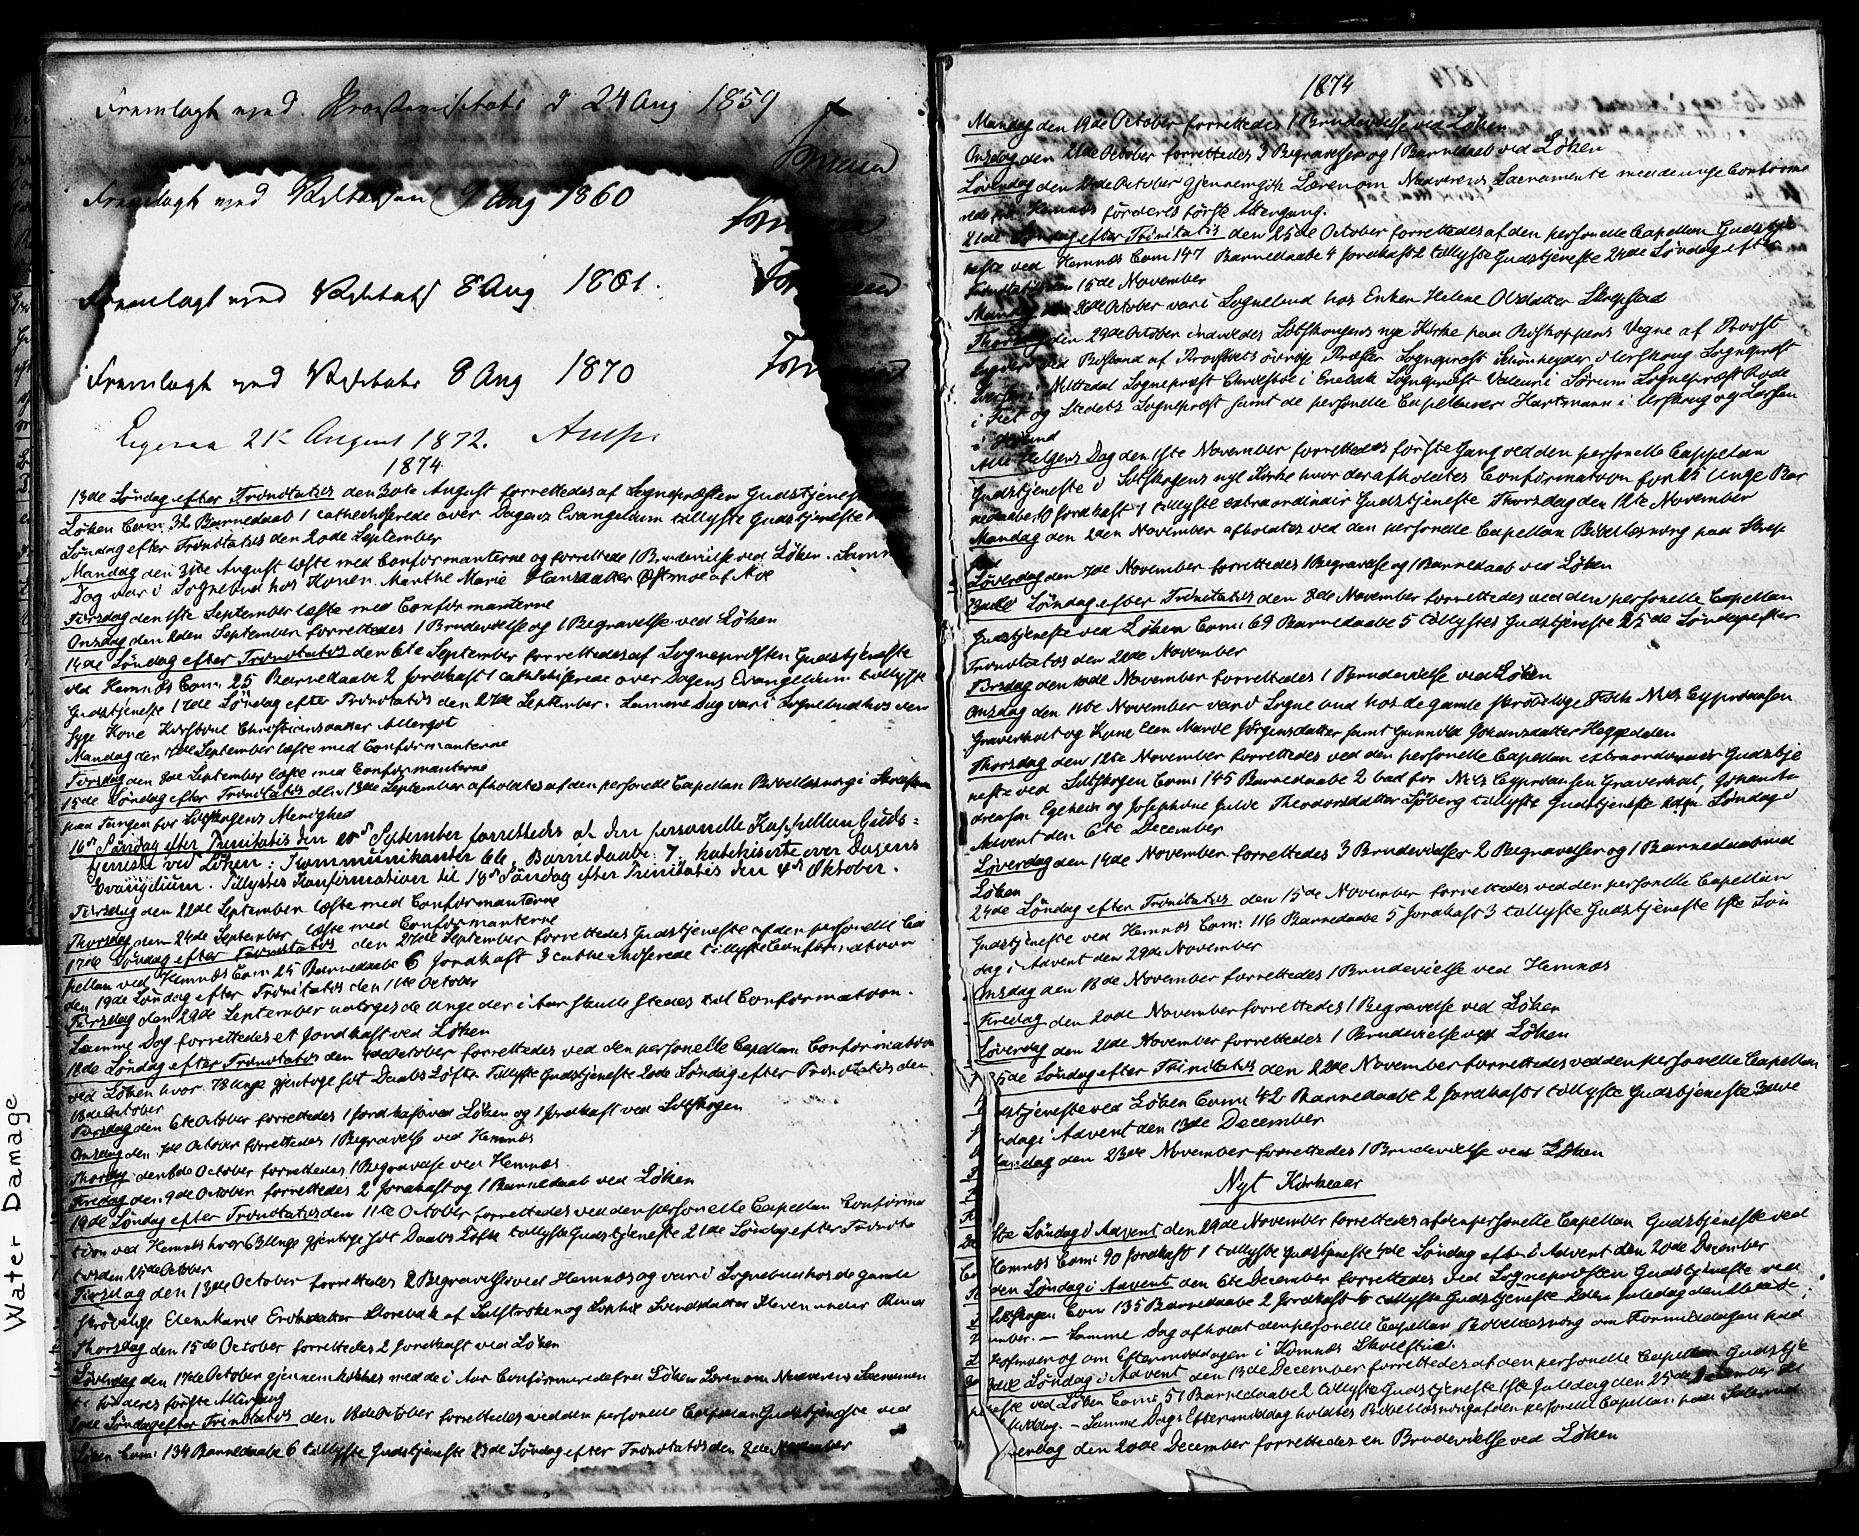 Water Damage
Fremlagt ved Provstevisitats d 24 Aug 1859
Fremlagt ved Visitatsen 9 Aug 1860
Fremlagt ved Visitats 8 Aug 1861.
Fremlagt ved Visitats 8 Aug 1870
Ligesaa 21de August 1872.
1874.
13de Søndag efter Trinitatis den 30te August forrettedes af Sognepræsten Gudstjeneste
Løken Com: 32 Barnedaab 1 catechiserede over Dagens Evangelium tillyste Gudstjeneste
Søndag efter Trinitatis den 20de September
Mandag den 31te August læste med Confirmanterne og forrettede 1 Brudevielse ved Løken. Samme
Dag var i Sognebud hos Konen Marthe Marie Hansdatter Østmoe af Moe
Tirsdag den 1ste September læste med Confirmanterne
Onsdag den 2den September forrettedes 1 Brudevielse og 1 Begravelse ved Løken
14de Søndag efter Trinitatis den 6te September forrettedes af Sognepræsten Gudstjeneste
ved Hemnæs Com: 25 Barnedaabe 2 Jordkast 1 catechiserede over Dagens Evangelium tillyste
Gudstjeneste 17de Søndag efter Trinitatis den 27de September. Samme Dag var i Sognebud hos den
syge Kone Christiansdatter
Mandag den 7de September læste med Confirmanterne
Tirsdag den 8de September læste med Confirmanterne
15de Søndag efter Trinitatis den 13de September afholdtes af den personelle Capellan Bibellæsning i
paa Tangen for Setskogens Menighed
16de Søndag efter Trinitatis den 20de September forrettedes af den personelle Kappellan Guds=
tjeneste ved Løken: Kommunikanter 66, Barnedaabe: 7, katekiserte over Dagens
Evangelium. Tillystes Konfirmation til 18de Søndag efter Trinitatis den 4de Oktober.
Tirsdag den 22de September læste med Confirmanterne
Thorsdag den 24de September læste med Confirmanterne
17de Søndag efter Trinitatis den 27de September forrettedes Gudstjeneste af den personelle Ca
pellan ved Hemnæs Com 25 Barnedaabe 6 Jordkast 3 catechiserede tillyste Confirmation
den 19de Søndag efter Trinitatis den 11te October
Tirsdag den 29de September de Unge der i Aar skulle stedes til Confirmation.
Samme Dag forrettedes et Jordkast ved Løken
18de Søndag efter Trinitatis den 4de October forrettedes ved den personelle Capellan Confirmation
ved Løken hvor 78 Unge gjentoge sit Daabs Løfte Tillyste Gudstjeneste 20de Søndag efter Trinitatis den
18de October
Tirsdag den 6te October forrettedes 1 Jordkast ved Løken og 1 Jordkast ved Setskogen
Onsdag den 7de October forrettedes 1 Begravelse ved Hemnæs
Thorsdag den 8de October forrettedes 1 Begravelse ved Hemnæs
Fredag den 9de October forrettedes 2 Jordkast og 1 Barnedaab ved Løken
19de Søndag efter Trinitatis den 11te October forrettedes ved den personelle Capellan Confirma
tion ved Hemnæs hvor 63 Unge gjentoge sit Daabs Løfte tillyste Gudstjeneste 21de Søndag efter Trinita
tis den 25de October
Tirsdag den 13de October forrettedes 2 Begravelser ved Hemnæs og var i Sognebud hos de gamle
skrøbelige Elen Marie
Thorsdag den 15de October forrettedes 2 Jordkast ved Løken
Løverdag den 17de October gjennemgikkes med de i Aar Confirmerede fra Løken Læren om Nadverens Sacramen
te for deres første Altergang
20de Søndag efter Trinitatis den 18de October forrettedes ved den personelle Capellan Gudstjeneste ved
Løken Com: 134 Barnedaabe 6 tillyste Gudstjeneste 23de Søndag efter Trinitatis den 8de November
1874
Mandag den 19de October forrettedes 1 Brudevielse ved Løken
Onsdag den 21de October forrettedes 3 Begravelser og 1 Barnedaab ved Løken
Løverdag den 24de October gjennemgik Læren om Nadverens Sacramente med de unge Confirme
rede fra Hemnæs for deres første Altergang.
21de Søndag efter Trinitatis den 25de October forrettedes af den personelle Capellan Gudstje
neste ved Hemnæs Com 147 Barnedaabe 4 Jordkast 2 tillyste Gudstjeneste 24de Søndag efter
Trinitatis den 15de November
Mandag den 26de October var i Sognebud hos Enken Helene Olsdatter Skrepstad
Thorsdag den 29de October indviedes Setskogens nye Kirke paa Biskoppens Vegne af Provst
ved Bistand af Provstiets øvrige Præster Sognepræst Urskoug Sognepræst
i Nittedal Sognepræst i Enebak Sognepræst i Sørum Sognepræst Rode
i Fet og Stedets Sognepræst samt de personelle Capellaner Hartmann i Urskoug og Larssen
i Høland
Alle Helgens Dag den 1ste November forrettedes første Gang ved den personelle Cappelan
Gudstjeneste i Setskogens nye Kirke hvor der afholdtes Confirmation for 25 Unge Bar
nedaabe 10 Jordkast 1 tillyste extraordinair Gudstjeneste Thorsdag den 12te November
Mandag den 2den November afholdtes ved den personelle Capellan Bibellæsning paa Skrep
stad
Løverdag den 7de November forrettedes 1 Begravelse og 1 Barnedaab ved Løken
23de Søndag efter Trinitatis den 8de November forrettedes ved den personelle Capellan
Gudstjeneste ved Løken Com: 69 Barnedaabe 5 tillystes Gudstjeneste 25de Søndag efter
Trinitatis den 22de November
Tirsdag den 10de November forrettedes 1 Brudevielse ved Løken
Onsdag den 11te November var i Sognebud hos de gamle skrøbelige Folk Niels Cypriansen
Graverholt og Kone Elen Marie Jørgensdatter samt Gunnild Johansdatter
Thorsdag den 12te November forrettedes ved den personelle Capellan extraordinair Gudstje
neste ved Setskogen Com: 145 Barnedaabe 2 bad for Niels Cypriansen Graverholt,
og Josephine Theodorsdatter Sjøberg tillyste Gudstjeneste 2den Søndag i
Advent den 6te December
Løverdag den 14de November forrettedes 3 Brudevielser 2 Begravelser og 1 Barnedaab ved
Løken
24de Søndag efter Trinitatis den 15de November forrettedes ved den personelle Capellan
Gudstjeneste ved Hemnæs Com: 116 Barnedaabe 5 Jordkast 3 tillyste Gudstjeneste 1ste Søn
dag i Advent den 29de November
Onsdag den 18de November forrettedes 1 Brudevielse ved Hemnæs
Fredag den 20de November forrettedes 1 Begravelse ved Løken
Løverdag den 21de November forrettedes 1 Brudevielse ved Løken
25de Søndag efter Trinitatis den 22de November forrettedes ved den personelle Capellan
Gudstjeneste ved Løken Com: 42 Barnedaabe 2 Jordkast 1 tillyste Gudstjeneste 3die
Søndag i Advent den 13de December
Mandag den 23de November forrettedes 1 Brudevielse ved Løken
Nyt Kirkeaar
1ste Søndag i Advent den 29de November forrettedes af den personelle Capellan Gudstjeneste ved
Hemnæs Com: 90 Jordkast 1 tillyste Gudstjeneste 4de Søndag i Advent den 20de December
2den Søndag i Advent den 6te December forrettedes ved Sognepræsten Gudstjeneste ved
Setskogen Com 135 Barnedaabe 2 Jordkast 6 tillyste Gudstjeneste 2den Juledag den 26de De
cember. — Samme Dag afholdt den personelle Capellan Bibellæsning om Formiddagen paa
og om Eftermiddagen i Hemnæs
3die Søndag i Advent den 13de December forrettedes af den personelle Capellan Gudstje
neste ved Løken Com: 51 Barnedaabe 2 tillyste Gudstjeneste 1ste Juledag den 25de December
Middag. — Samme Dags Eftermiddag holdtes Bibellæsning af den personelle Capellan paa
den 20de December forrettedes en Brudevielse ved Løken